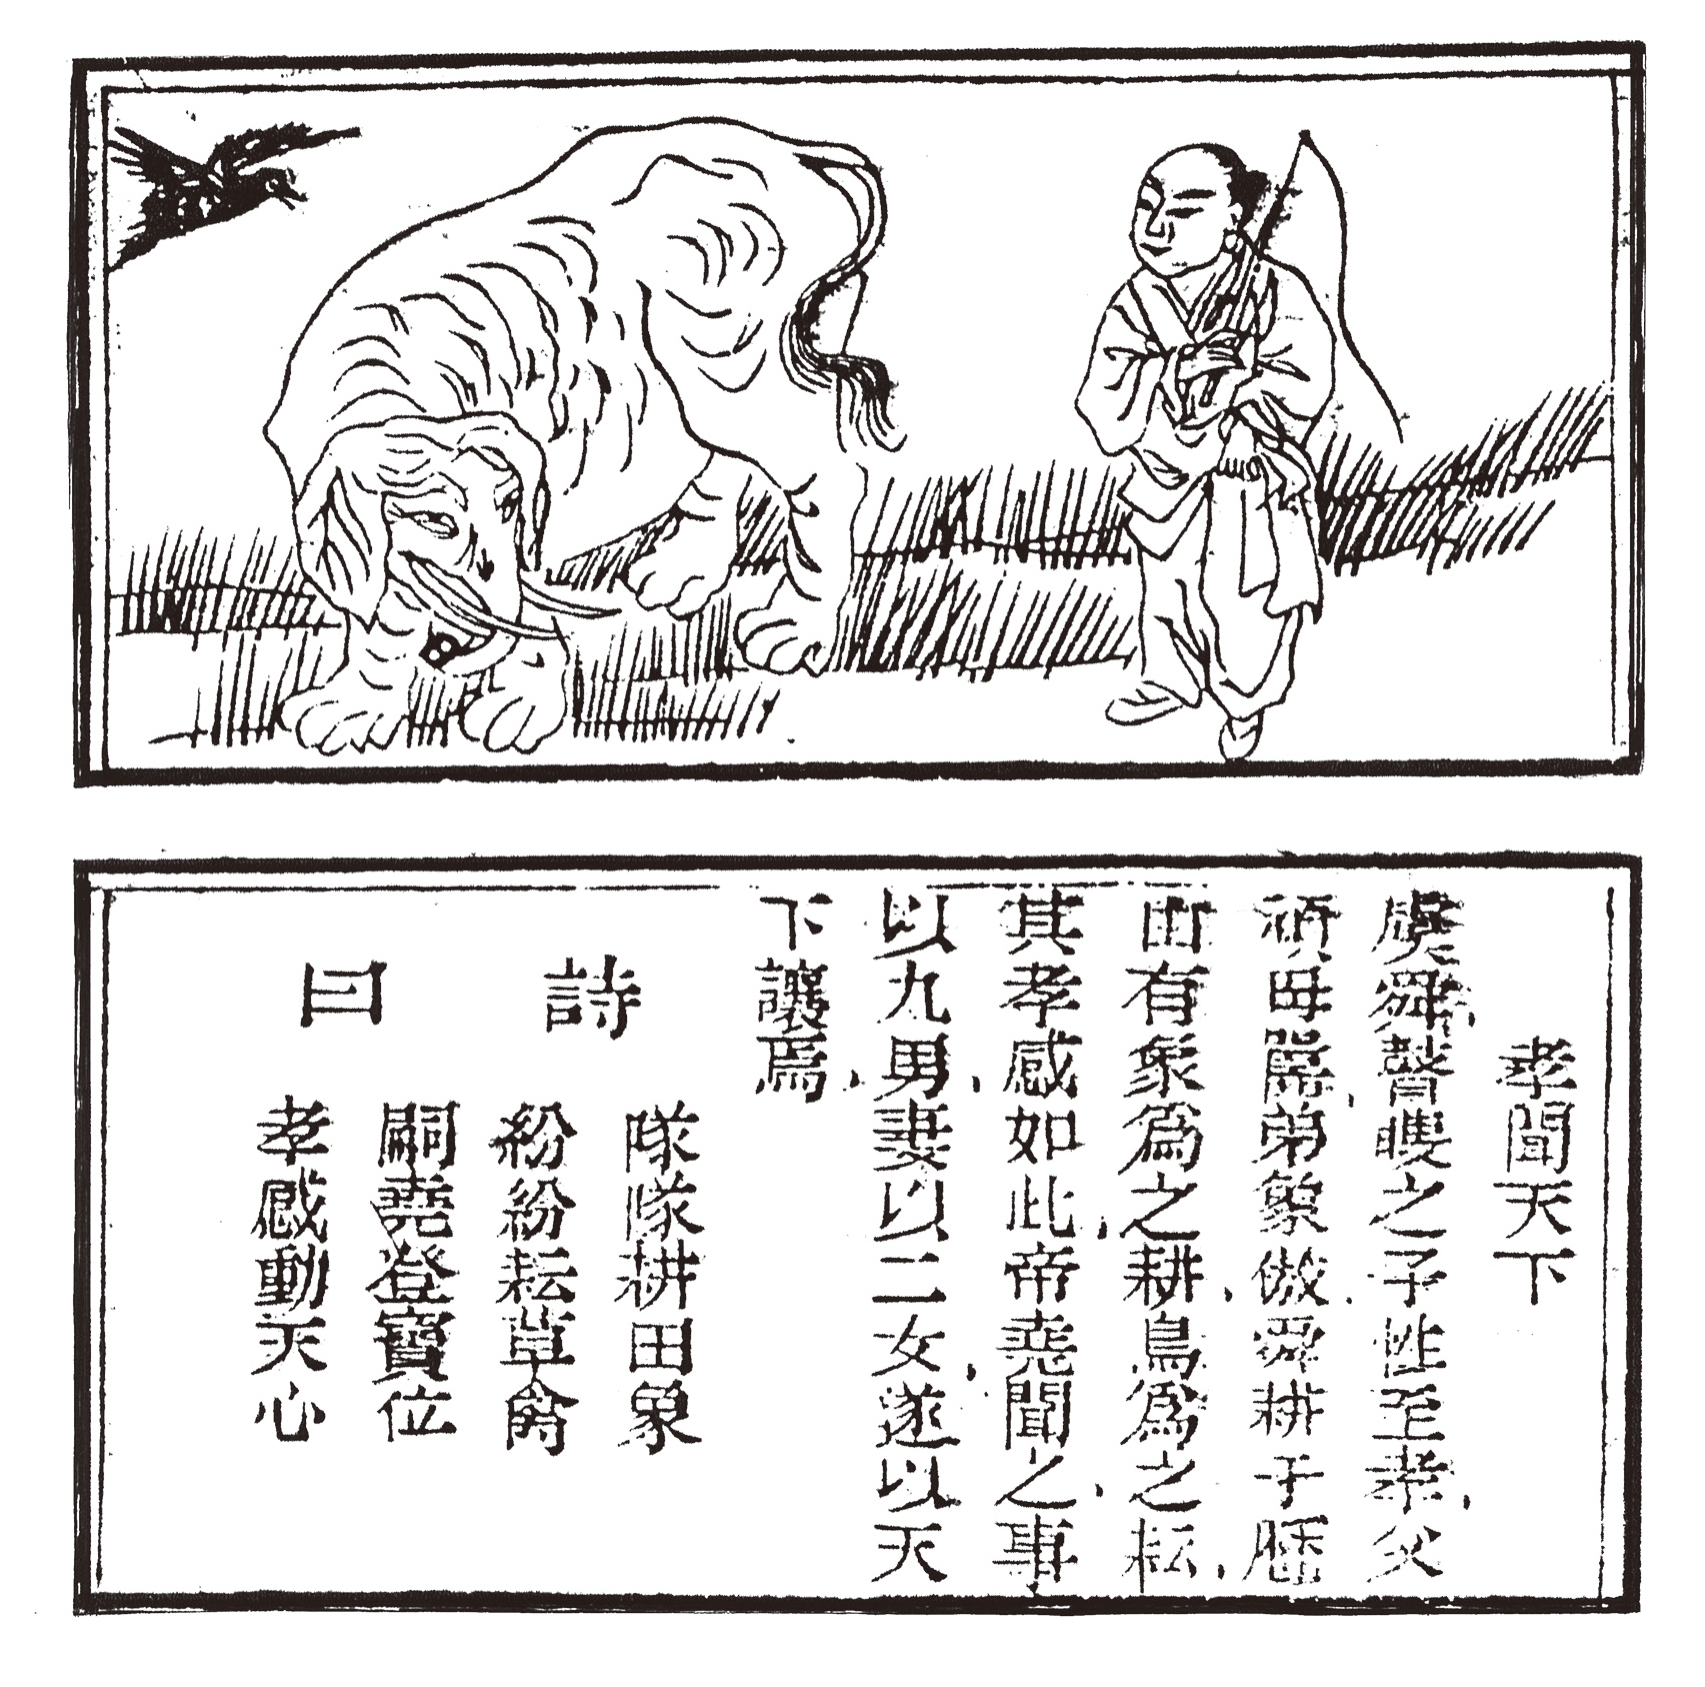 孝聞天下
虞舜瞽瞍之子性至孝父
頑母嚚弟象傲舜耕于歷
山有象爲之耕鳥爲之耘
其孝感如此帝堯聞之事
以九男妻以二女遂以天
下讓焉
詩曰
隊隊耕田象
紛紛耘草禽
嗣堯登寶位
孝感動天心